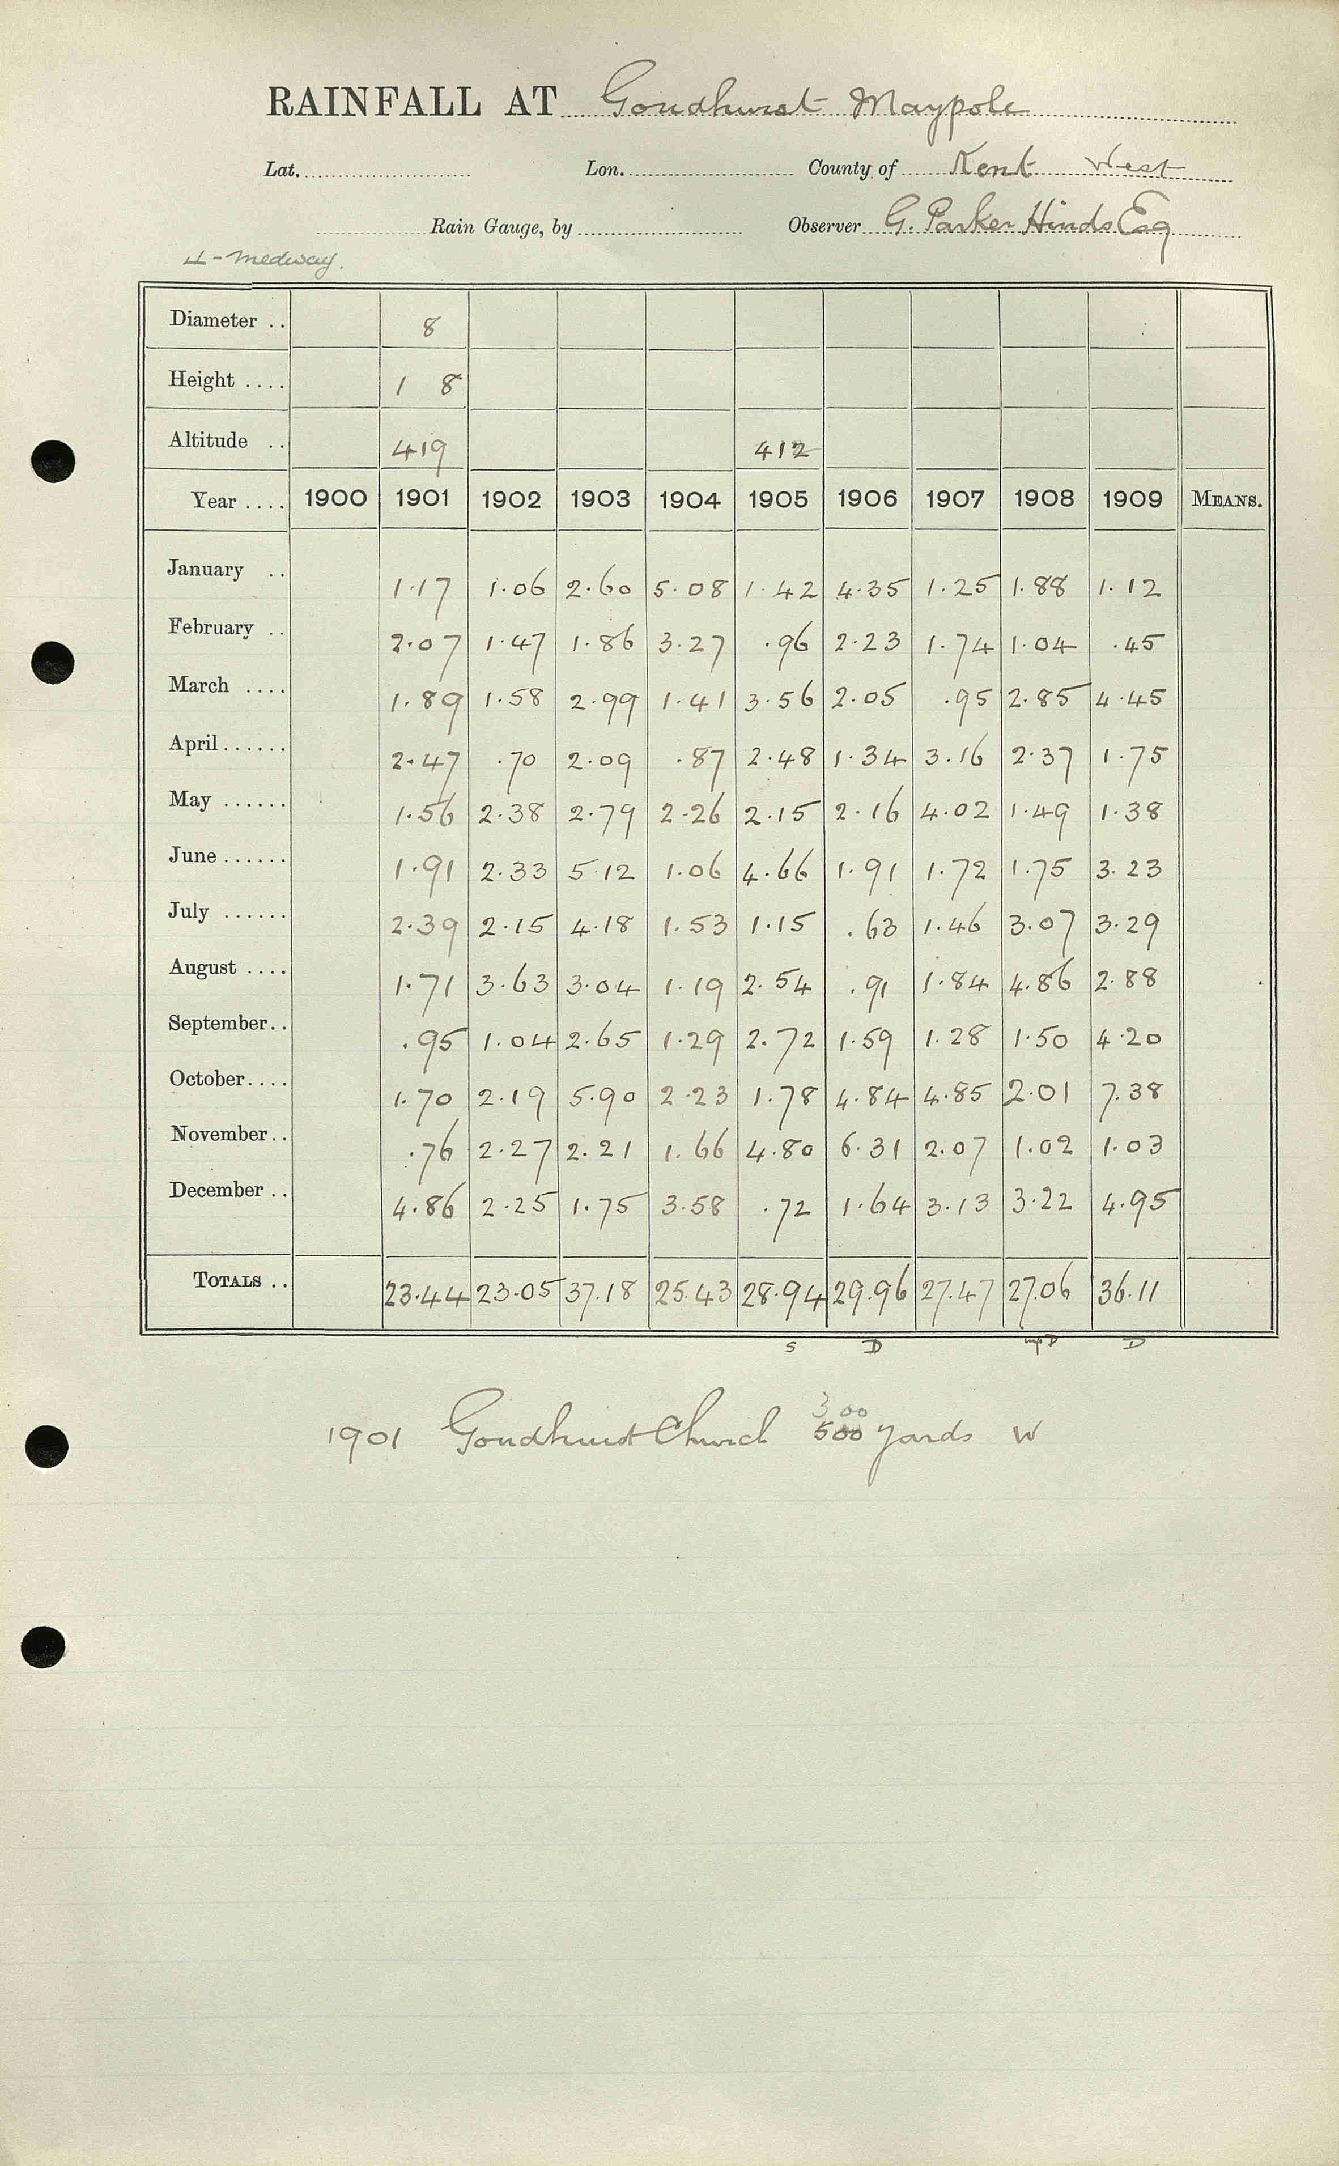 RAINFALL AT Goudhurst Maypole
Lat. Lon. County of Kent West
Rain Gauge, by Observer G. Parker Hinds Esq
Medway.
Diameter .. 8
Height .... 1 8
Altitude .. 419 412
Year .... 1900 1901 1902 1903 1904 1905 1906 1907 1908 1909 MEANS.
January .. 1.17 1.06 2.60 5.08 1.42 4.35 1.25 1.88 1.12
February .. 2.07 1.47 1.86 3.27 .96 2.23 1.74 1.04 .45
March .... 1.89 1.58 2.99 1.41 3.56 2.05 .95 2.85 4.45
April...... 2.47 .70 2.09 .87 2.48 1.34 3.16 2.37 1.75
May ...... 1.56 2.38 2.79 2.26 2.15 2.16 4.02 1.49 1.38
June...... 1.91 2.33 5.12 1.06 4.66 1.91 1.72 1.75 3.23
July ...... 2.39 2.15 4.18 1.53 1.15 .63 1.46 3.07 3.29
August .... 1.71 3.63 3.04 1.19 2.54 .91 1.84 4.86 2.88
September.. .95 1.04 2.65 1.29 2.72 1.59 1.28 1.50 4.20
October.... 1.70 2.19 5.90 2.23 1.78 4.84 4.85 2.01 7.38
November.. .76 2.27 2.21 1.66 4.80 6.31 2.07 1.02 1.03
December .. 4.86 2.25 1.75 3.58 .72 1.64 3.13 3.22 4.95
TOTALS .. 23.44 23.05 37.18 25.43 28.94 29.96 27.47 27.06 36.11
S D D
300
1901 Goudhurst Church 500 yards W